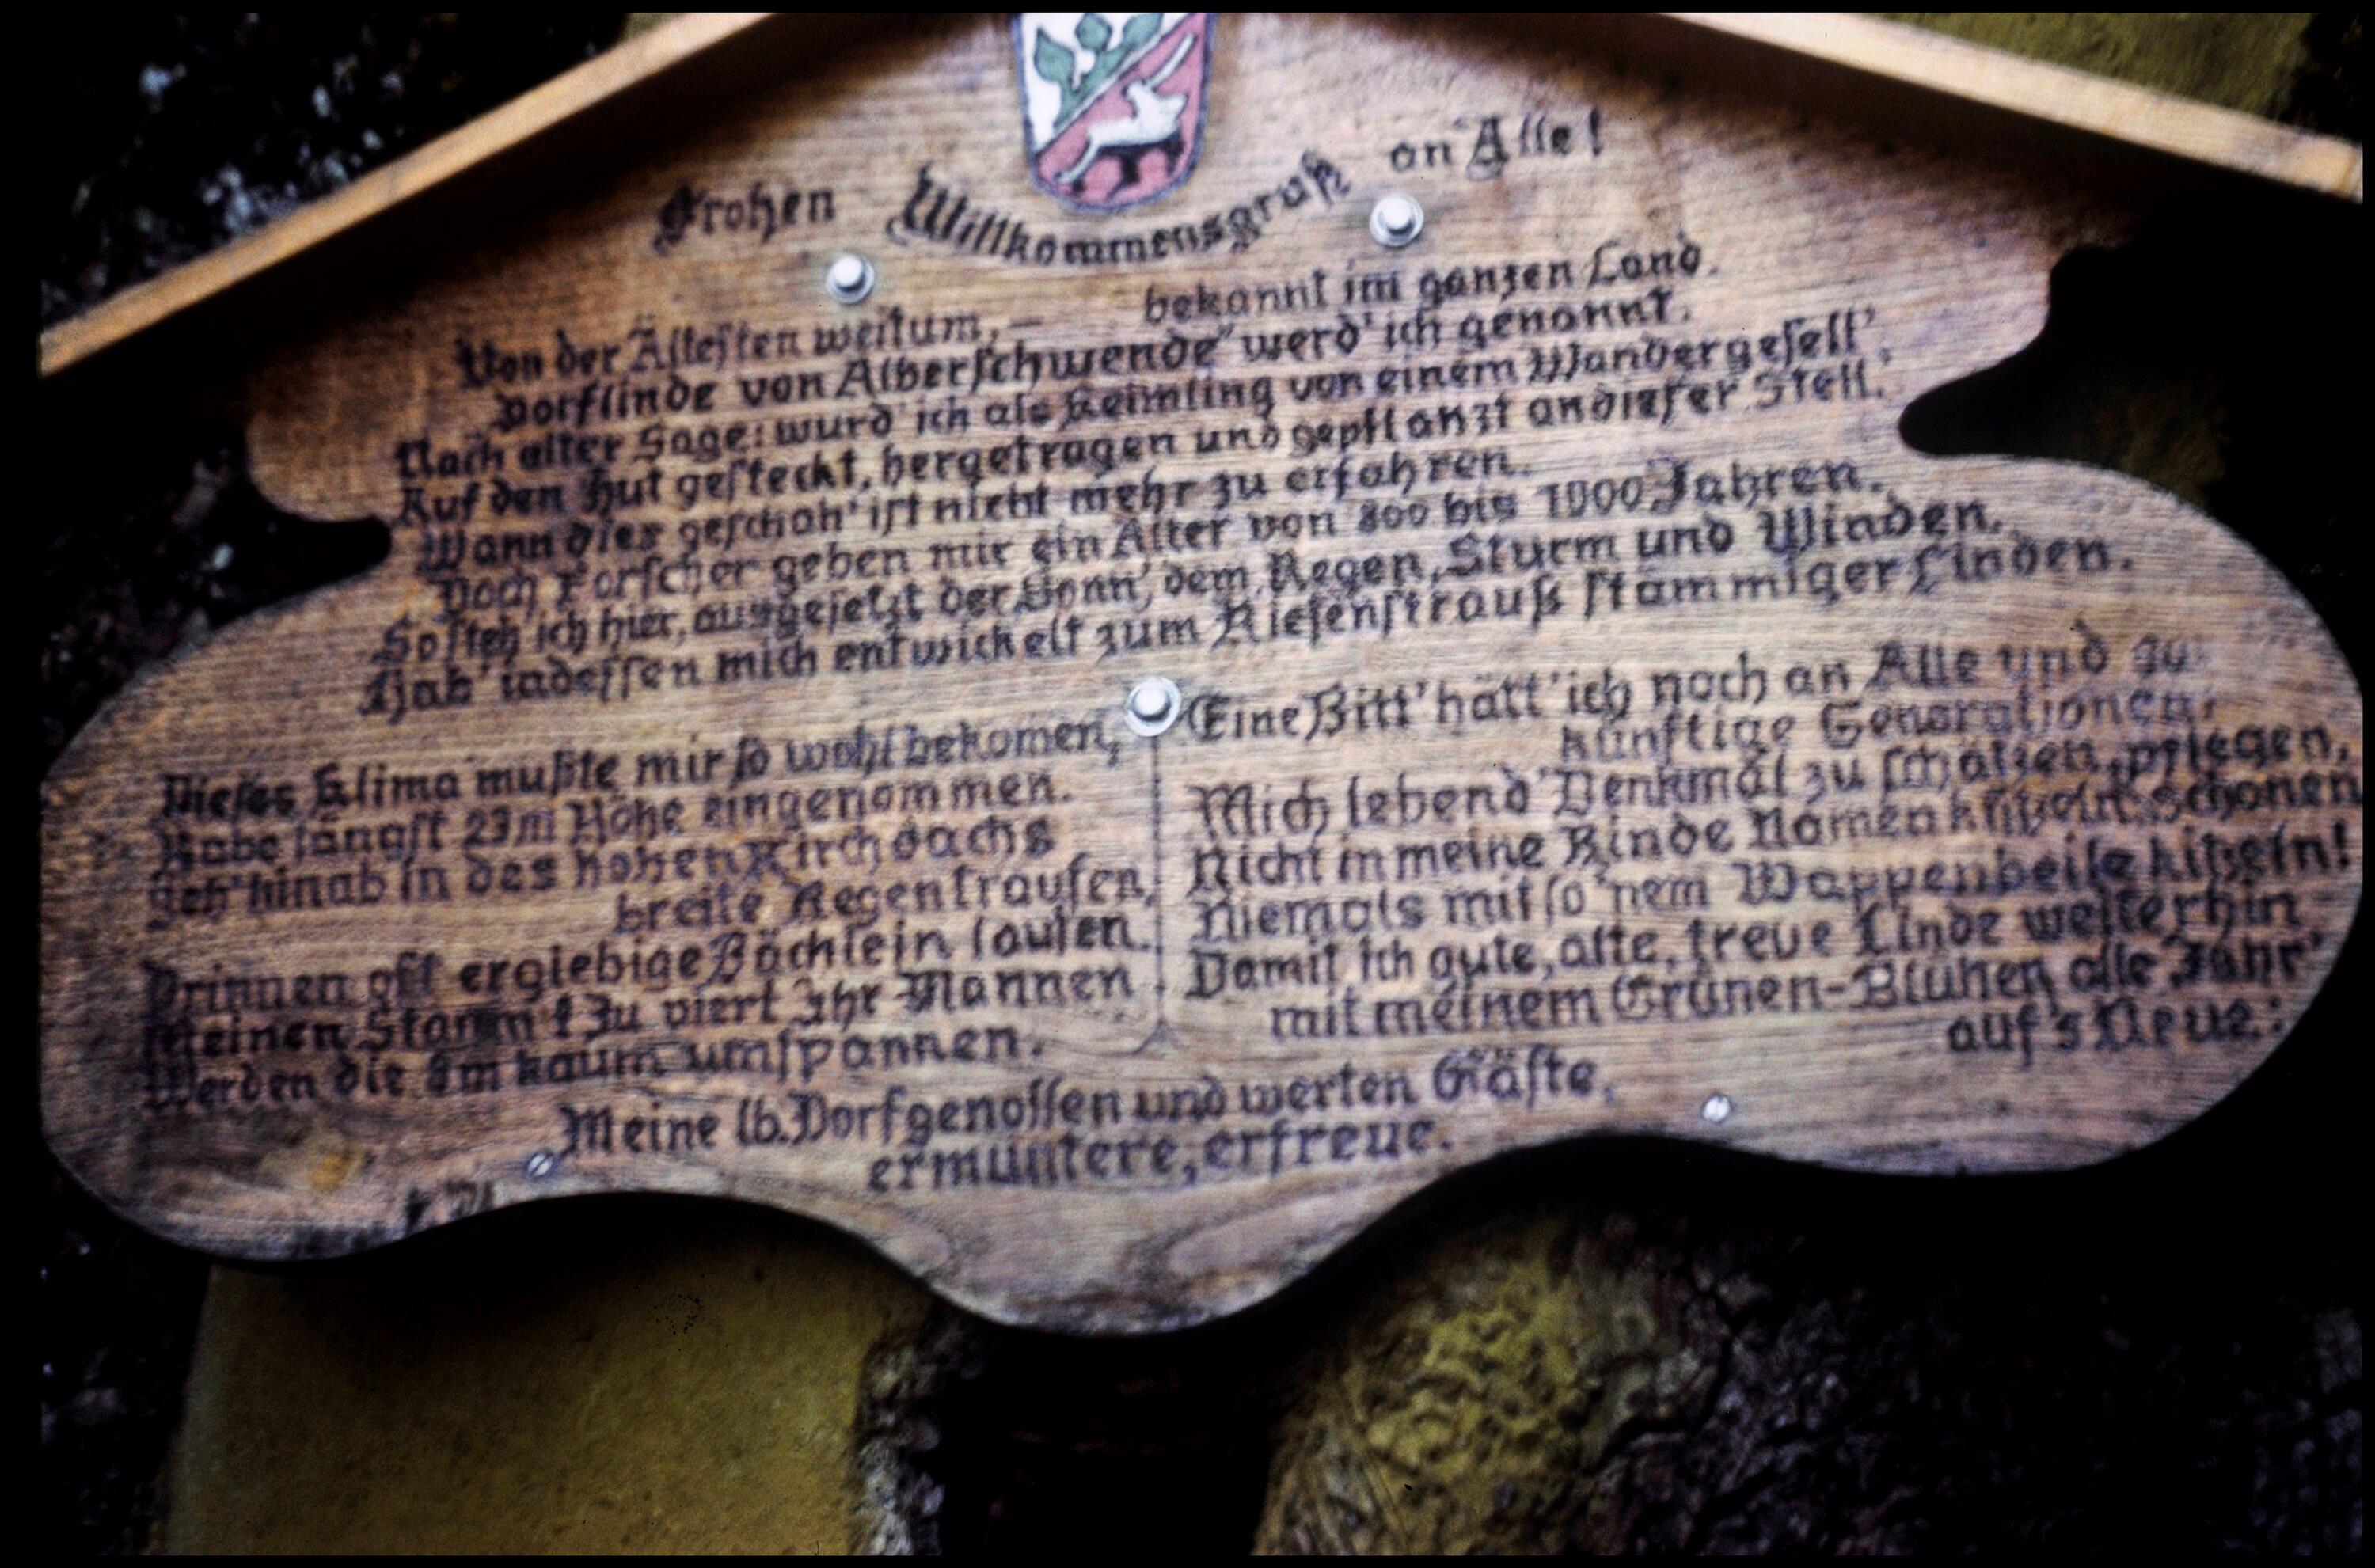 Frohen Willkommensgruß an Alle!
Von der Ältesten weitum,— bekannt im ganzen Land.
Dorflinde von Alberschwende" werd' ich genannt.
Nach alter Sage: wurd' ich als Keimling von einem Wandergesell',
Auf den Hut gesteckt, hergetragen und gepflanzt an dieser Stell.'
Wann dies geschah' ist nicht mehr zu erfahren.
Doch Forscher geben mir ein Alter von 800 bis 1000 Jahren.
So steh' ich hier, ausgesetzt der Sonn', dem Regen, Sturm und Winden.
Hab' indessen mich entwickelt zum Riesenstrauß stammiger Linden.
Dieses Klima mußte mir so wohl bekomen,
Habe längst 23m Höhe eingenommen.
Geh' hinab in des hohen Kirchdachs
breite Regentraufen,
Drinnen oft ergiebige Bächlein laufen.
Meinen Stamm Zu viert Ihr Mannen
Werden die 8m kaum umspannen.
Eine Bitt' hätt' ich noch an Alle und zu
künftige Generationen:
Mich lebend Denkmal zu schätzen, pflegen, schonen
Nicht in meine Rinde Namen kritzeln
Niemals mit so 'nem Wappenbeile kitzeln!
Damit ich gute, alte, treue Linde weiterhin
mit meinem Grünen-Blühen alle Jahr'
auf's Neue:
Meine lb. Dorfgenossen und werten Gäste,
ermuntere, erfreue.